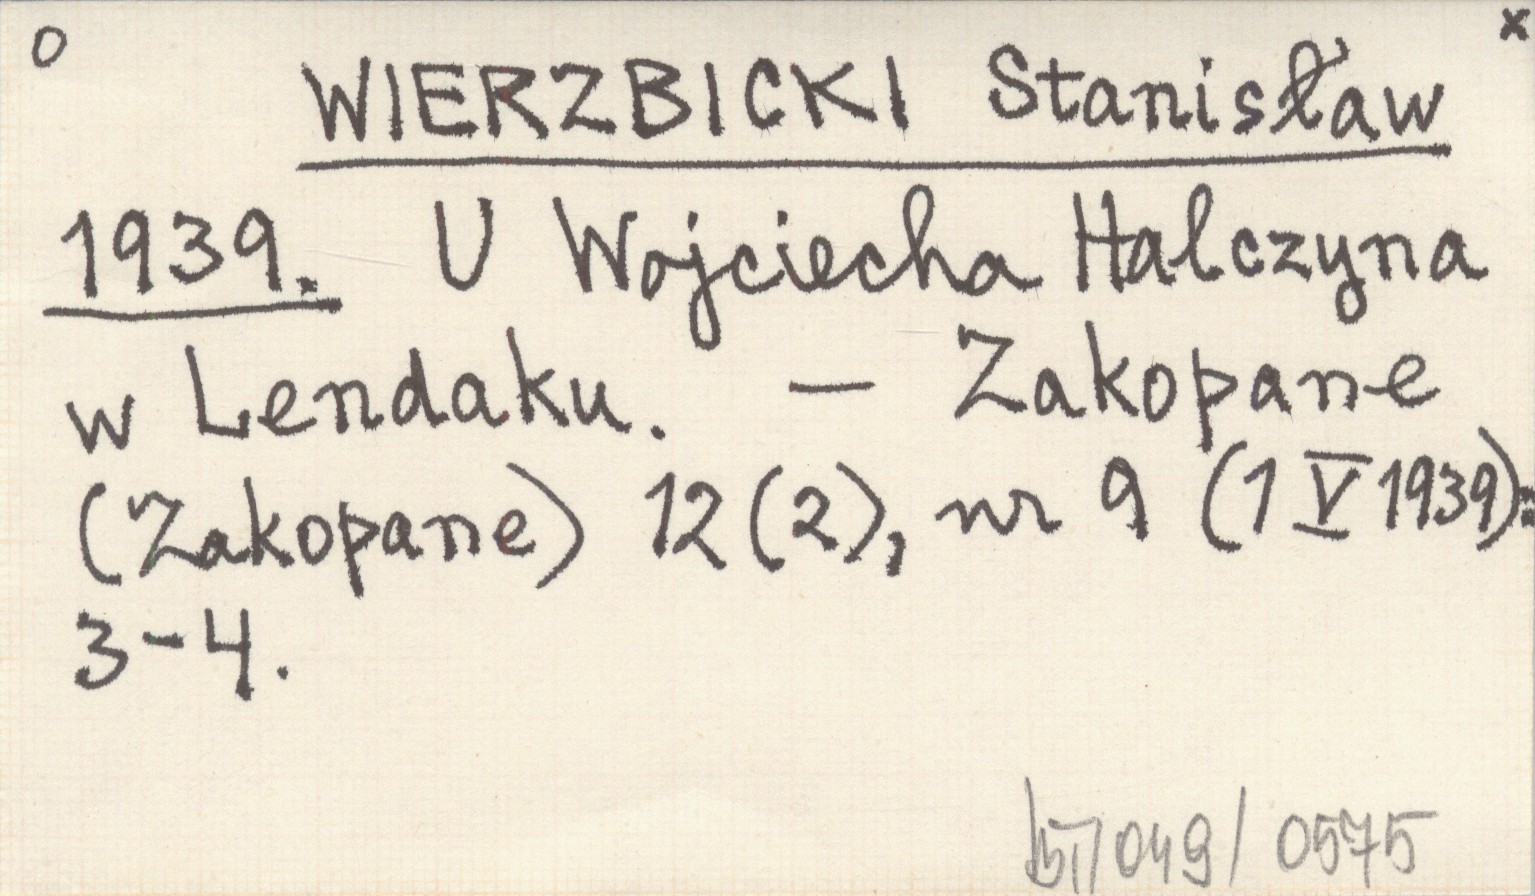 o x
WIERZBICKI Stanisław
1939. U Wojciecha Halczyna
w Lendaku. – Zakopane
(Zakopane) 12(2), nr 9 (1 V 1939):
3-4.
049/0575